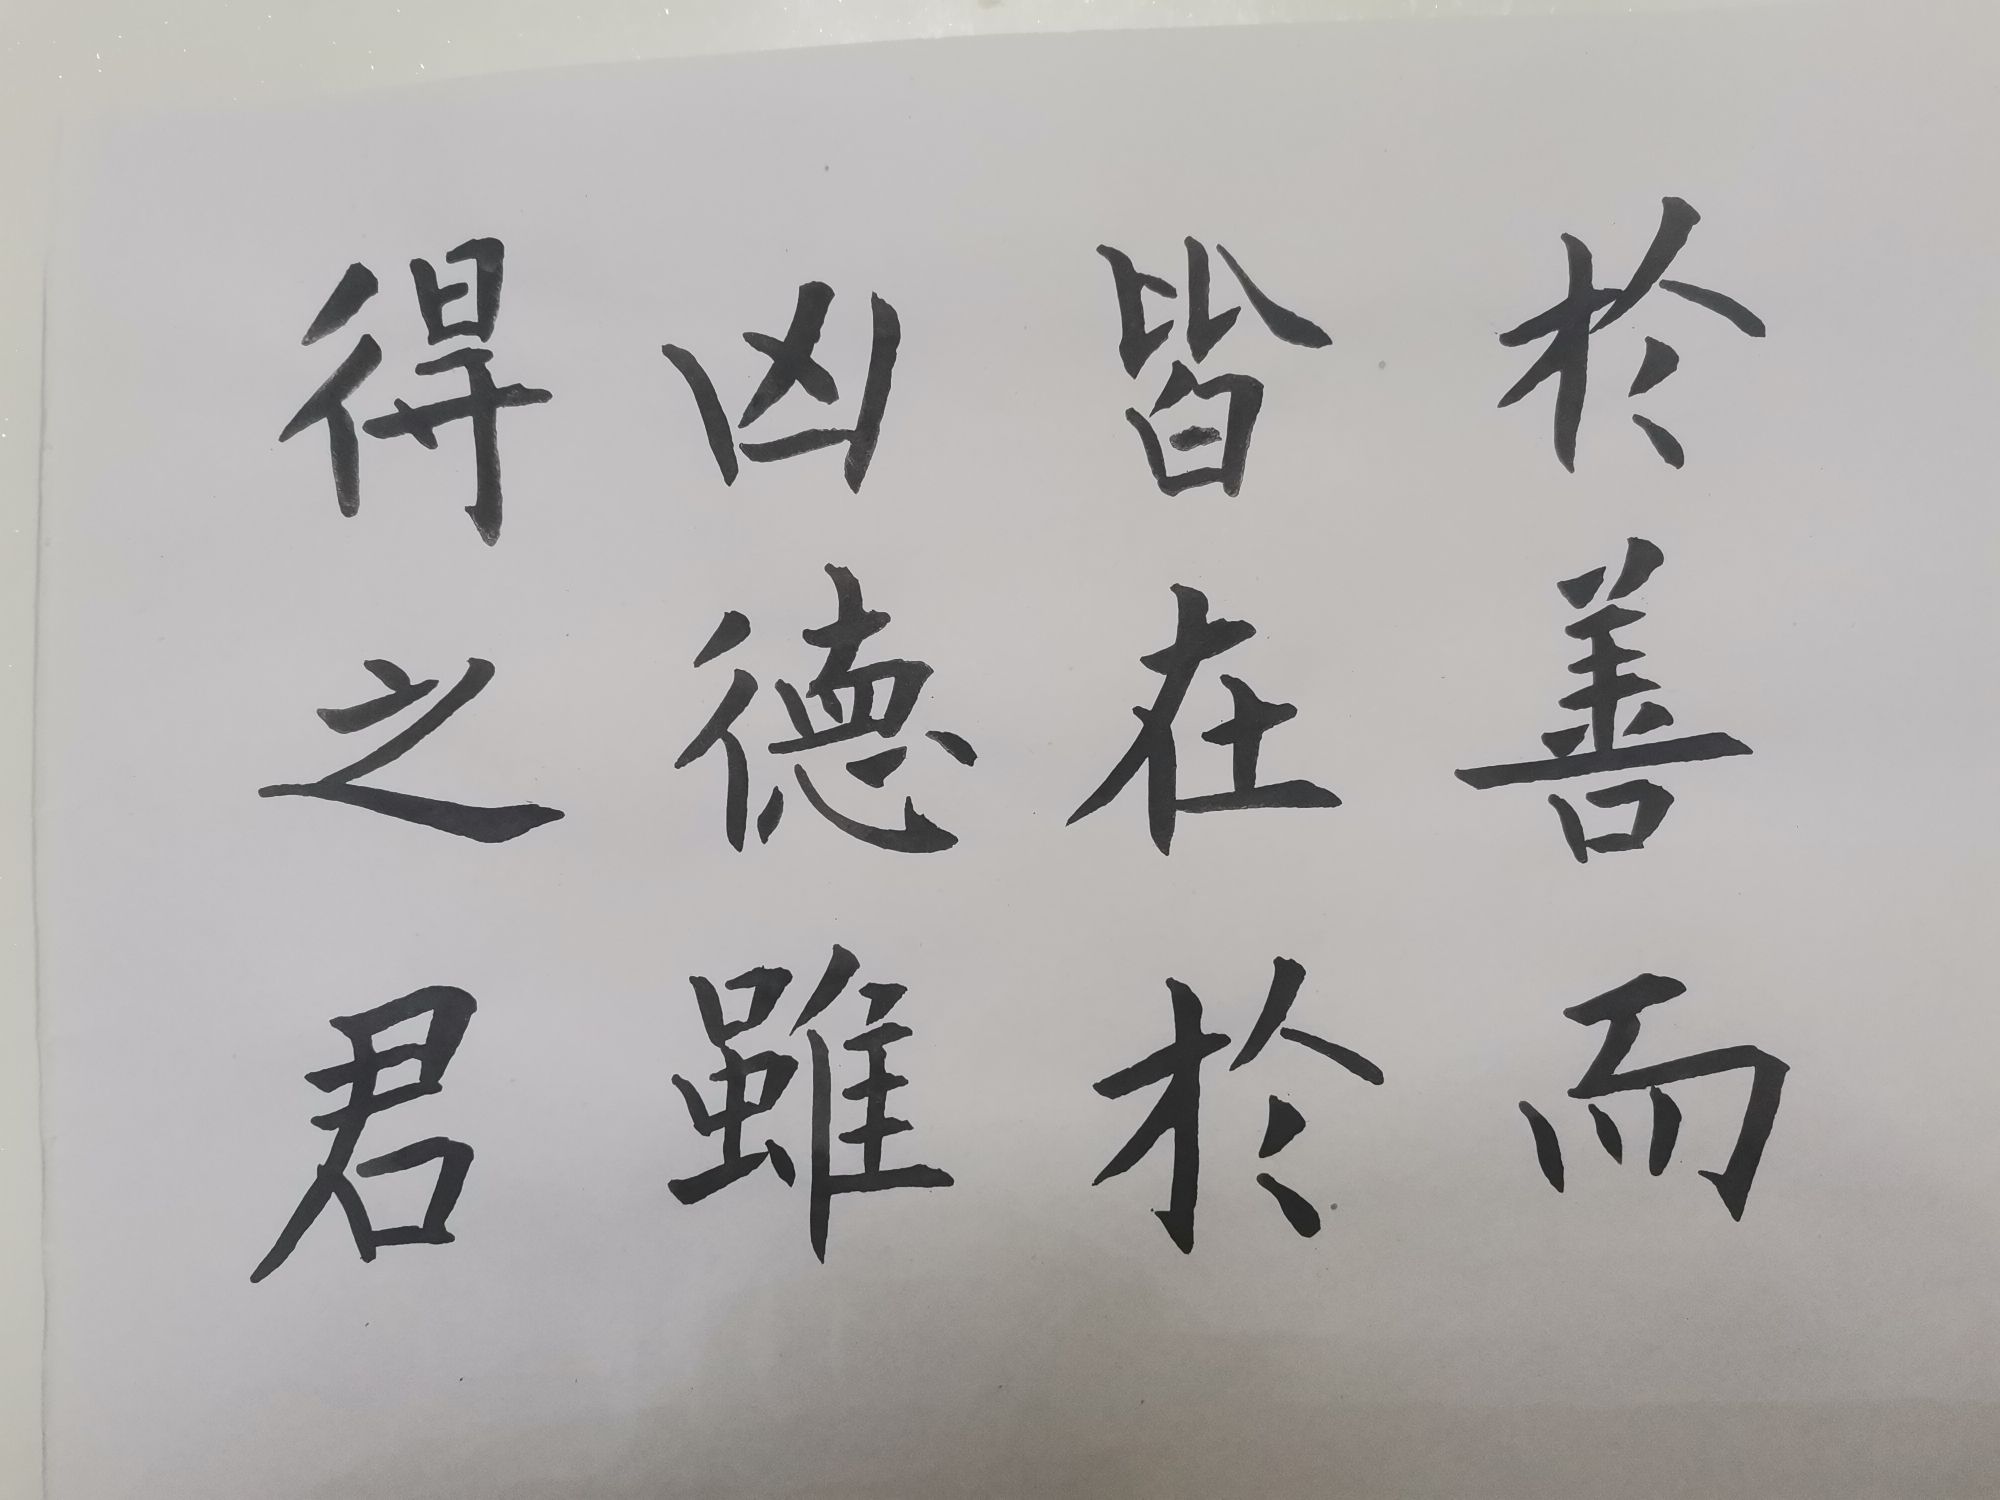 於善而
皆在於
凶德雖
得之君